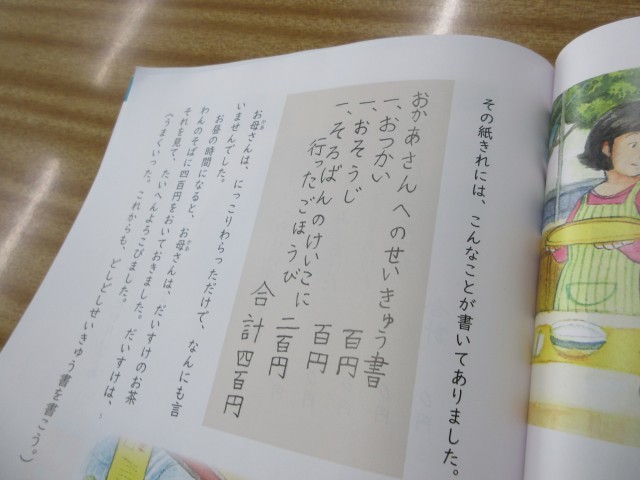 その紙きれには、こんなことが書いてありました。
おかあさんへのせいきゅう書
一、おつかい 百円
一、おそうじ 百円
一、そろばんのけいこに
行ったごほうび 二百円
合計四百円
お母さんは、にっこりわらっただけで、なんにも言
いませんでした。
お昼の時間になると、お母さんは、だいすけのお茶
わんのそばに四百円をおいておきました。だいすけは、
それを見て、たいへんよろこびました。
(うまくいった。これからも、どしどしせいきゅう書を書こう。)